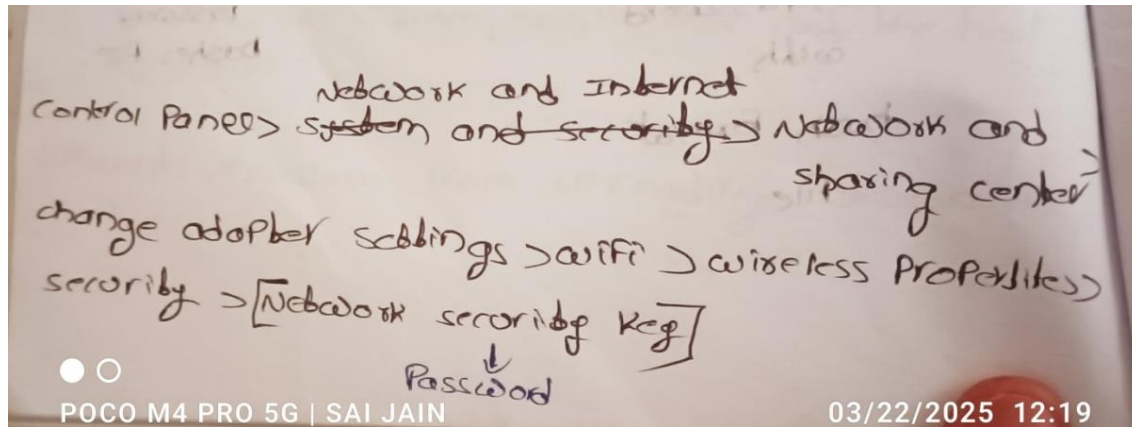 Network and Internet
Control Panel> system and security > Network and
sharing center>
change adopter settings >wifi > wireless Properdites>
security > [Network security Key]
↓
Password
POCO M4 PRO 5G | SAI JAIN
03/22/2025 12:19